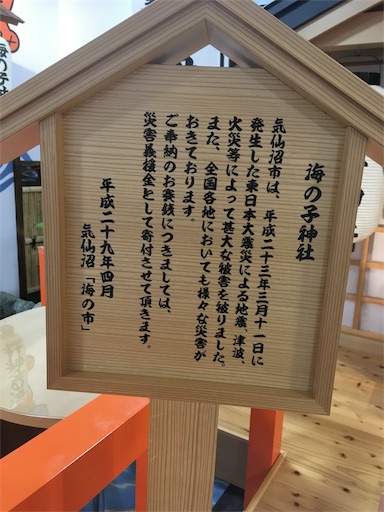 海の子神社
気仙沼市は、平成二十三年三月十一日に
発生した東日本大震災による地震、津波、
火災等によって甚大な被害を被りました。
また、全国各地においても様々な災害が
おきております。
ご奉納のお賽銭につきましては、
災害義援金として寄付させて頂きます。
平成二十九年四月
気仙沼「海の市」
海の子神社